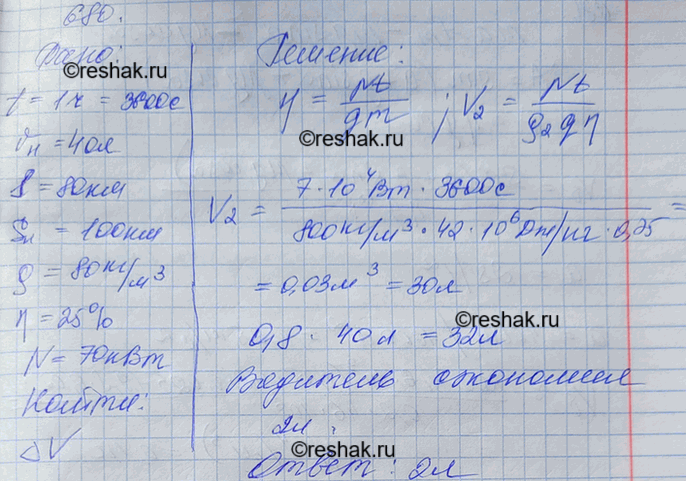 680.
Дано:
©reshak.ru
t = 1 ч = 3600с
Vн = 40л
S = 80км
Sн = 100км
ρ = 80кг/м³
η = 25%
N = 70кВт
Найти:
ΔV
Решение:
©reshak.ru
η = Nt/qm ; V₂ = Nt/ρ₂qη
V₂ = 7·10⁴Вт · 3600с / 800кг/м³ · 42·10⁶Дж/кг · 0,25 =
= 0,03м³ = 30л
©reshak.ru
0,8 · 40л = 32л
Водитель сэкономил
2л.
©reshak.ru
Ответ: 2л